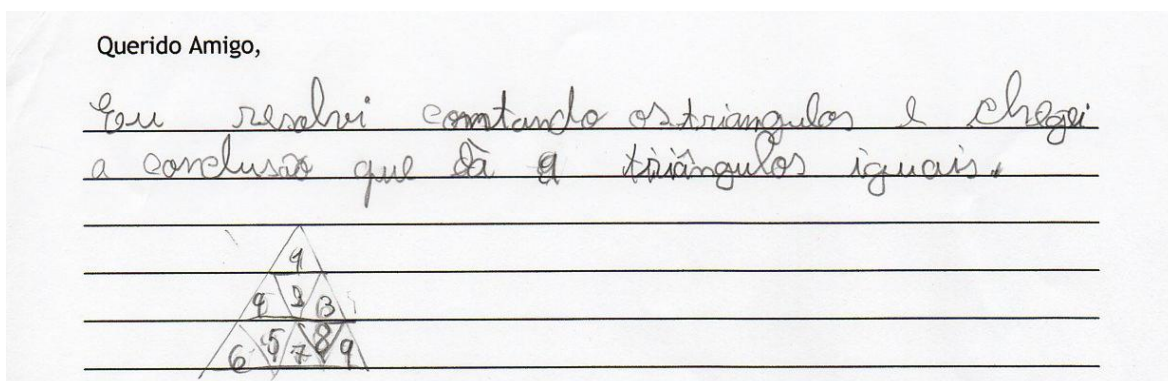 Querido Amigo,
Eu resolvi comtando os triangulos e chegei
a conclusão que dà 9 triângulos iguais.
1
4 2 3
6 5 7 8 9